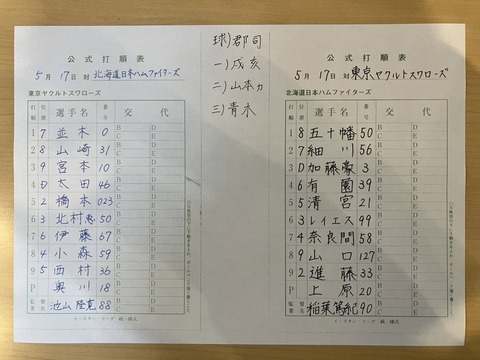 公式打順表
5月17日 対 北海道日本ハムファイターズ
東京ヤクルトスワローズ
打順 位置 選手名 番号 交代
1 7 並木 0 B C D E
2 8 山崎 31 B C D E
3 9 宮本 10 B C D E
4 D 太田 46 B C D E
5 2 橋本 023 B C D E
6 3 北村恵 50 B C D E
7 6 伊藤 67 B C D E
8 4 小森 59 B C D E
9 5 西村 36 B C D E
P 奥川 18 B C D E
監督 署名 池山隆寛 88
イースタン・リーグ 統一様式
球)郡司
一)戌亥
二)山本力
三)青木
公式打順表
5月17日 対 東京ヤクルトスワローズ
北海道日本ハムファイターズ
打順 位置 選手名 番号 交代
1 8 五十幡 50 B C D E
2 7 細川 56 B C D E
3 D 加藤豪 3 B C D E
4 6 有薗 39 B C D E
5 5 清宮 21 B C D E
6 3 レイエス 99 B C D E
7 4 奈良間 58 B C D E
8 9 山口 127 B C D E
9 2 進藤 33 B C D E
P 上原 20 B C D E
監督 署名 稲葉篤紀 90
イースタン・リーグ 統一様式